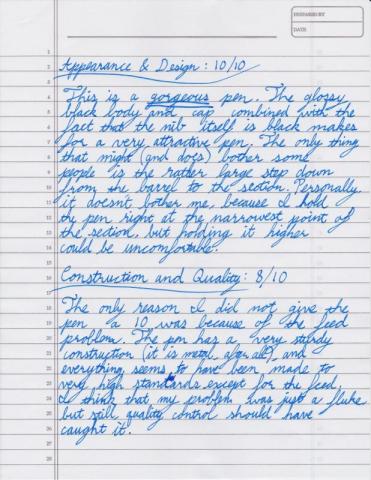 PREPARED BY
DATE
1
2
3
4
5
6
7
8
9
10
11
12
13
14
15
16
17
18
19
20
21
22
23
24
25
26
27
28
Appearance & Design: 10/10
This is a gorgeous pen. The glossy
black body and cap combined with the
fact that the nib itself is black makes
for a very attractive pen. The only thing
that might (and does) bother some
people is the rather large step down
from the barrel to the section. Personally
it doesn't bother me, because I hold
the pen right at the narrowest point of
the section, but holding it higher
could be uncomfortable.
Construction and Quality: 8/10
The only reason I did not give the
pen a 10 was because of the feed
problem. The pen has a very sturdy
construction (it is metal, after all), and
everything seems to have been made to
very high standards except for the feed.
I think that my problem was just a fluke
but still quality control should have
caught it.